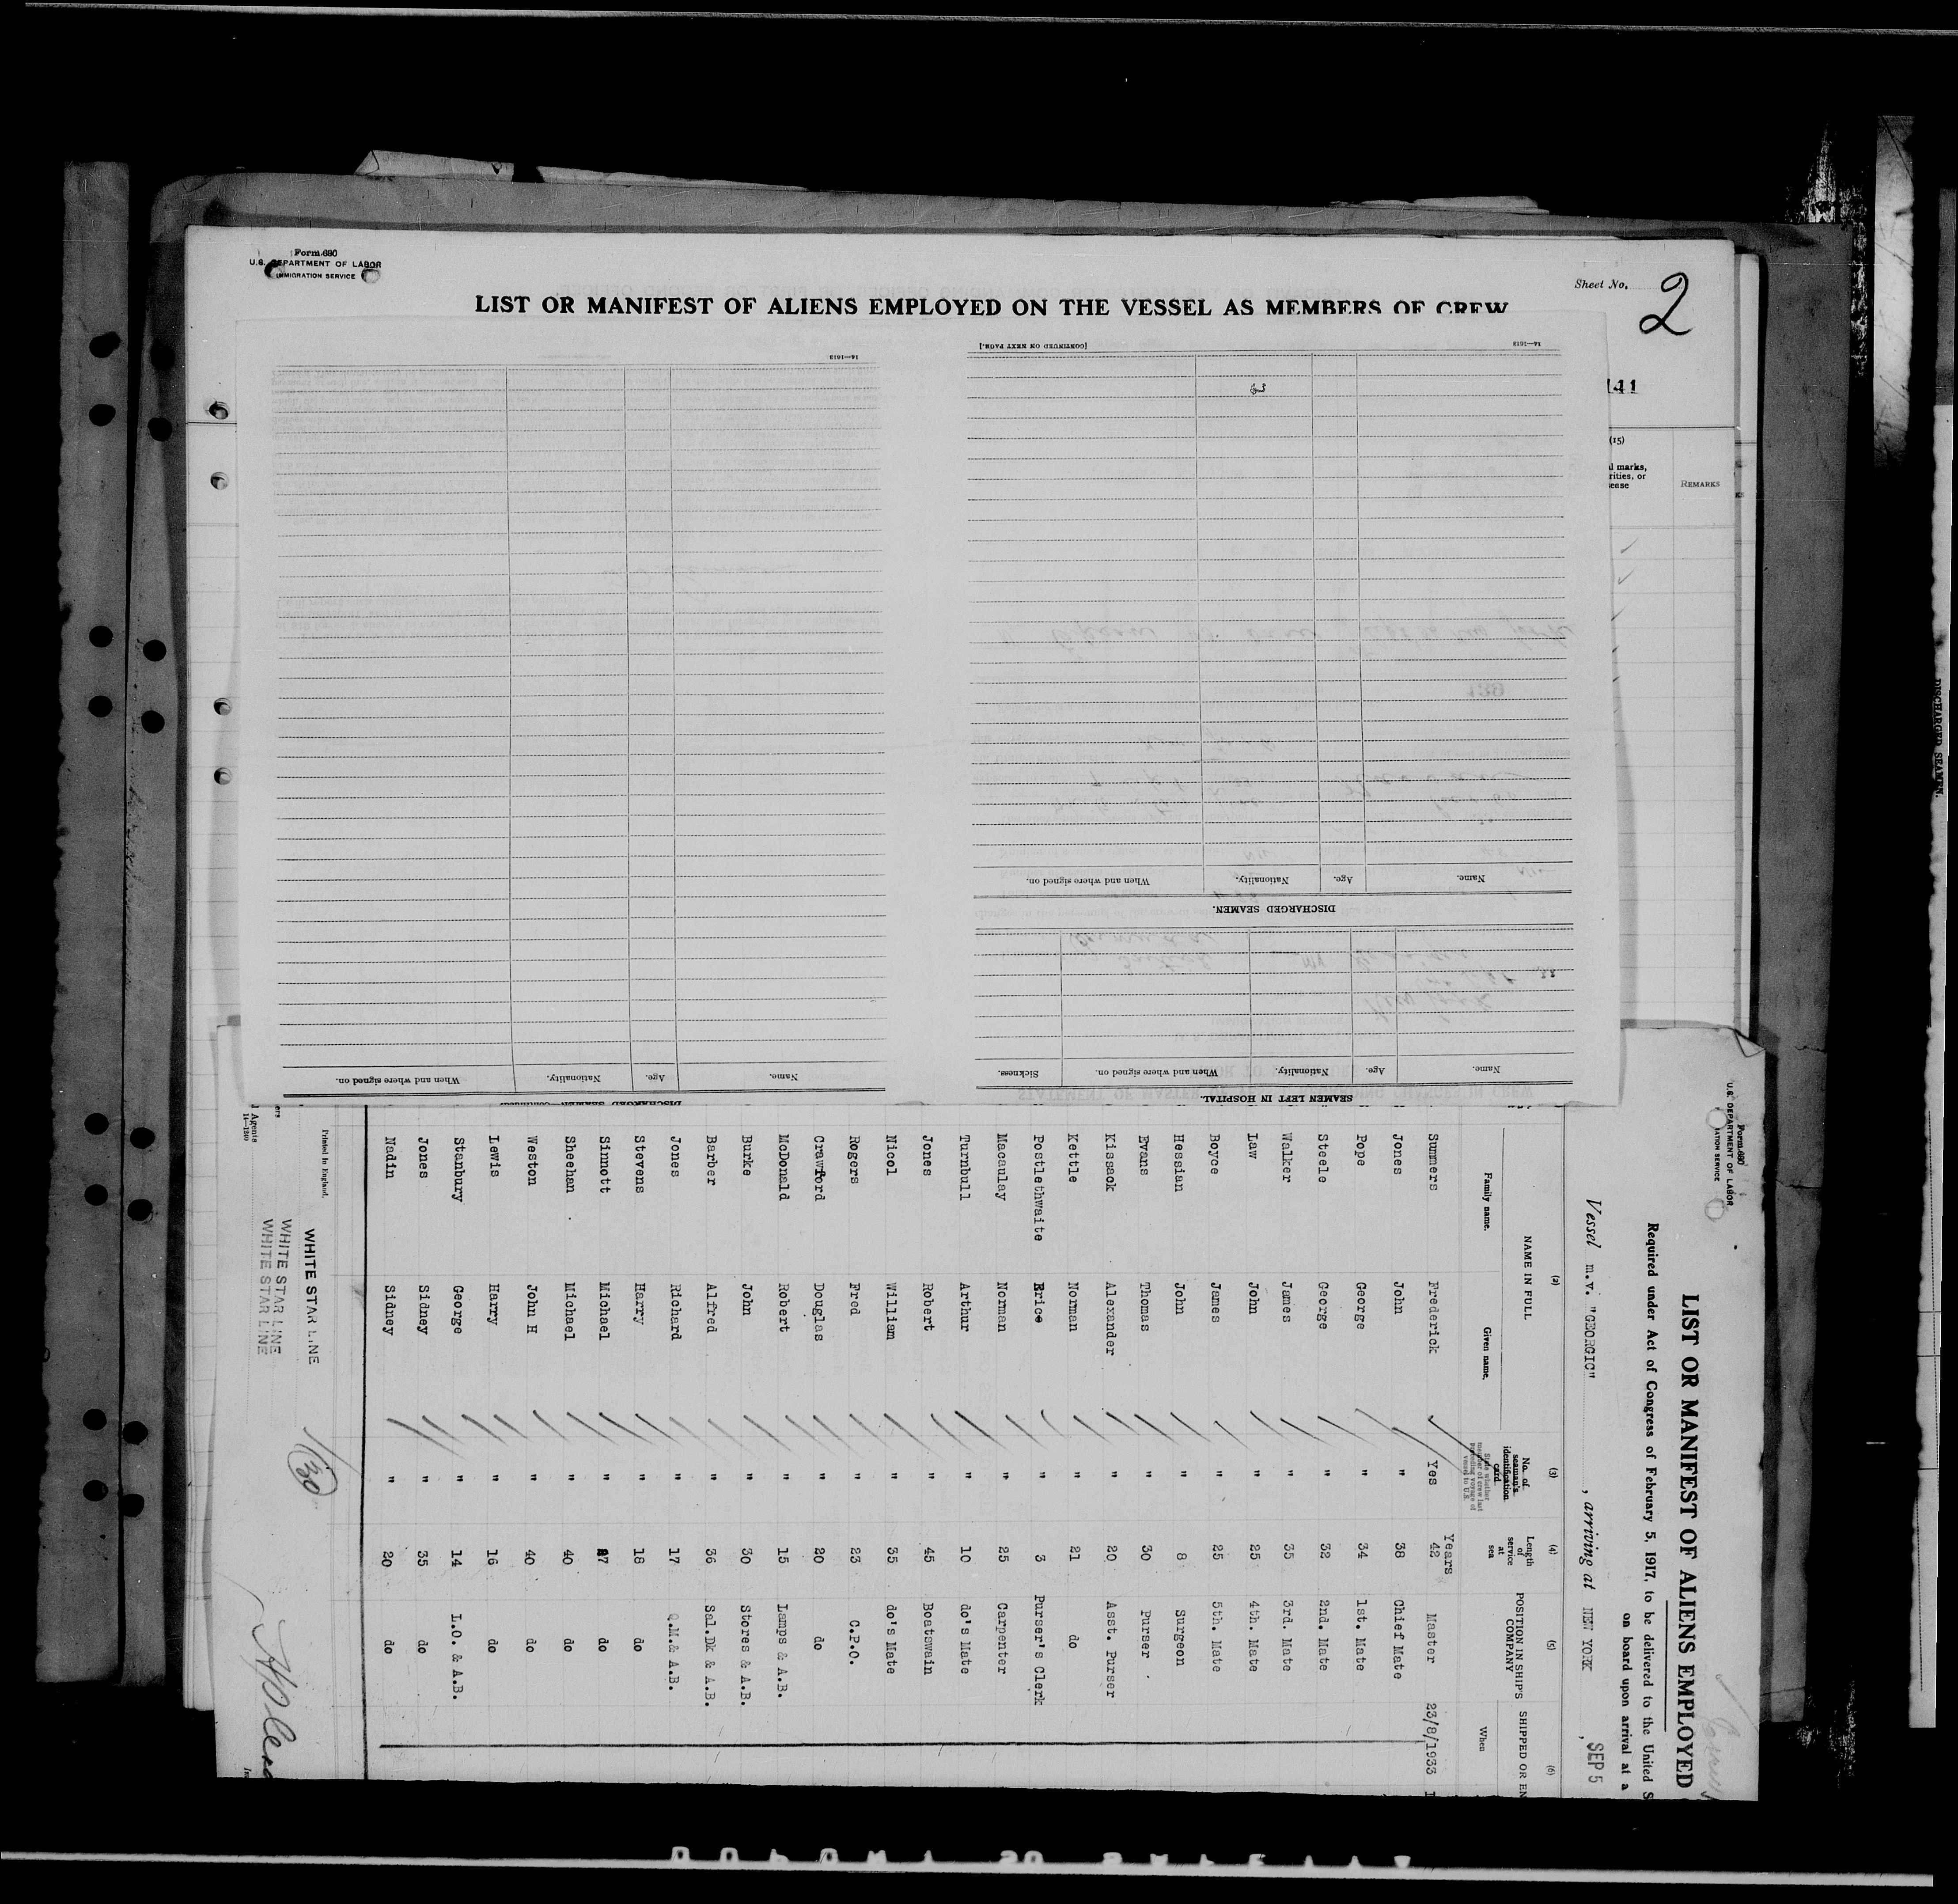 Form 680
U.S. DEPARTMENT OF LABOR
IMMIGRATION SERVICE
Sheet No. 2
LIST OR MANIFEST OF ALIENS EMPLOYED ON THE VESSEL AS MEMBERS OF CREW
141
(15)
REMARKS
[CONTINUED ON NEXT PAGE.]
14—1613
14—1613
SEAMEN LEFT IN HOSPITAL.
Name. Age. Nationality. When and where signed on. Sickness.
DISCHARGED SEAMEN.
Name. Age. Nationality. When and where signed on.
DISCHARGED SEAMEN—Continued
Name. Age. Nationality. When and where signed on.
DISCHARGED SEAMEN.
Form 680
U.S. DEPARTMENT OF LABOR
LIST OR MANIFEST OF ALIENS EMPLOYED
Required under Act of Congress of February 5, 1917, to be delivered to the United S
on board upon arrival at a
Vessel m.v. "GEORGIC", arriving at NEW YORK, SEP 5
(2) (3) (4) (5) (6)
NAME IN FULL
Family name. Given name.
No. of seaman's identification card
State whether member of crew last preceding voyage of vessel to U.S.
Length of service at sea
POSITION IN SHIP'S COMPANY
SHIPPED OR EN
When
Years
Summers Frederick Yes 42 Master 23/8/1933
Jones John " 38 Chief Mate
Pope George " 34 1st. Mate
Steele George " 32 2nd. Mate
Walker James " 35 3rd. Mate
Law John " 25 4th. Mate
Boyce James " 25 5th. Mate
Hessian John " 8 Surgeon
Evans Thomas " 30 Purser
Kissack Alexander " 20 Asst. Purser
Kettle Norman " 21 do
Postlethwaite Erice " 3 Purser's Clerk
Macaulay Norman " 25 Carpenter
Turnbull Arthur " 10 do's Mate
Jones Robert " 45 Boatswain
Nicol William " 35 do's Mate
Rogers Fred " 23 C.P.O.
Crawford Douglas " 20 do
McDonald Robert " 15 Lamps & A.B.
Burke John " 30 Stores & A.B.
Barber Alfred " 36 Sal.Dk & A.B.
Jones Richard " 17 Q.M.& A.B.
Stevens Harry " 18 do
Sinnott Michael " 27 do
Sheehan Michael " 40 do
Weston John H " 40 do
Lewis Harry " 16 do
Stanbury George " 14 L.O. & A.B.
Jones Sidney " 35 do
Nadin Sidney " 20 do
Printed in England.
WHITE STAR LINE
WHITE STAR LINE
WHITE STAR LINE
30
Agents
14—1240